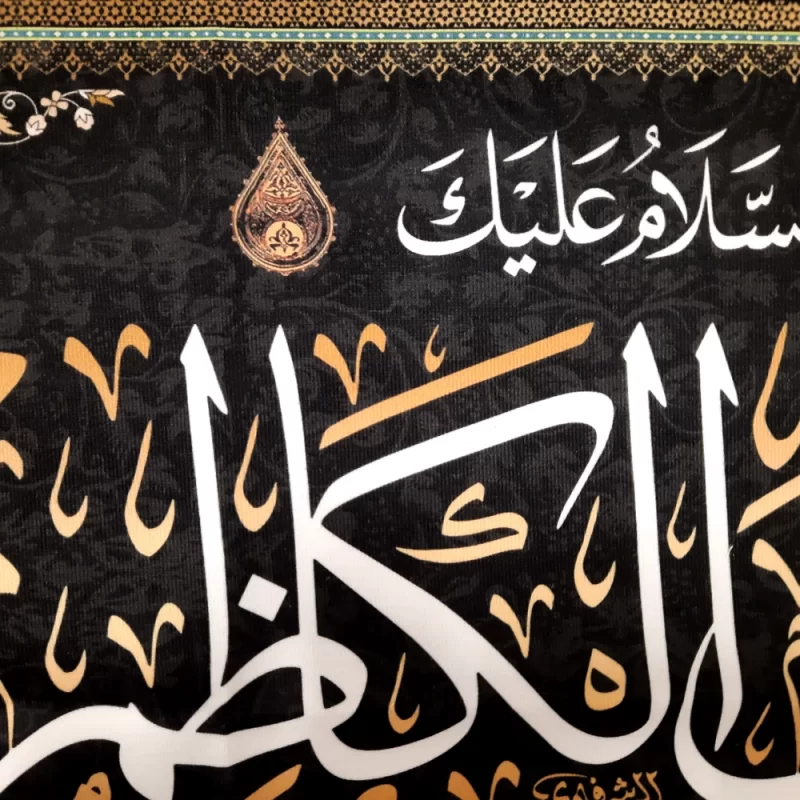 سَّلَامُ عَلَيْكَ
الكاظم